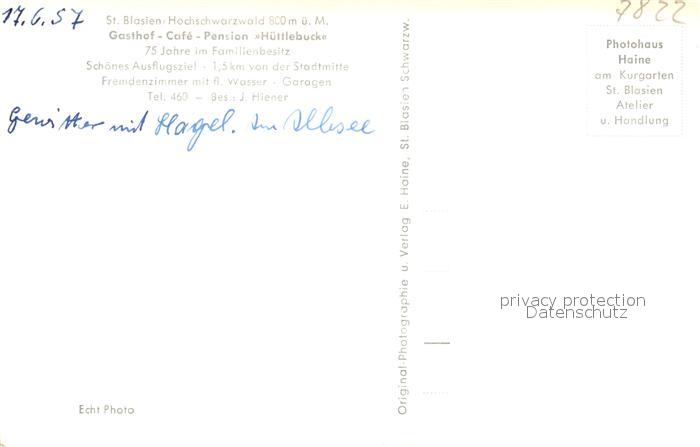 17.6.57
St. Blasien/Hochschwarzwald 800 m ü. M.
Gasthof - Café - Pension »Hüttlebuck«
75 Jahre im Familienbesitz
Schönes Ausflugsziel - 1,5 km von der Stadtmitte
Fremdenzimmer mit fl. Wasser - Garagen
Tel. 460 - Bes.: J. Hiener
Gewitter mit Hagel. Im
Echt Photo
Original-Photographie u. Verlag E. Haine, St. Blasien Schwarzw.
7822
Photohaus
Haine
am Kurgarten
St. Blasien
Atelier
u. Handlung
privacy protection
Datenschutz